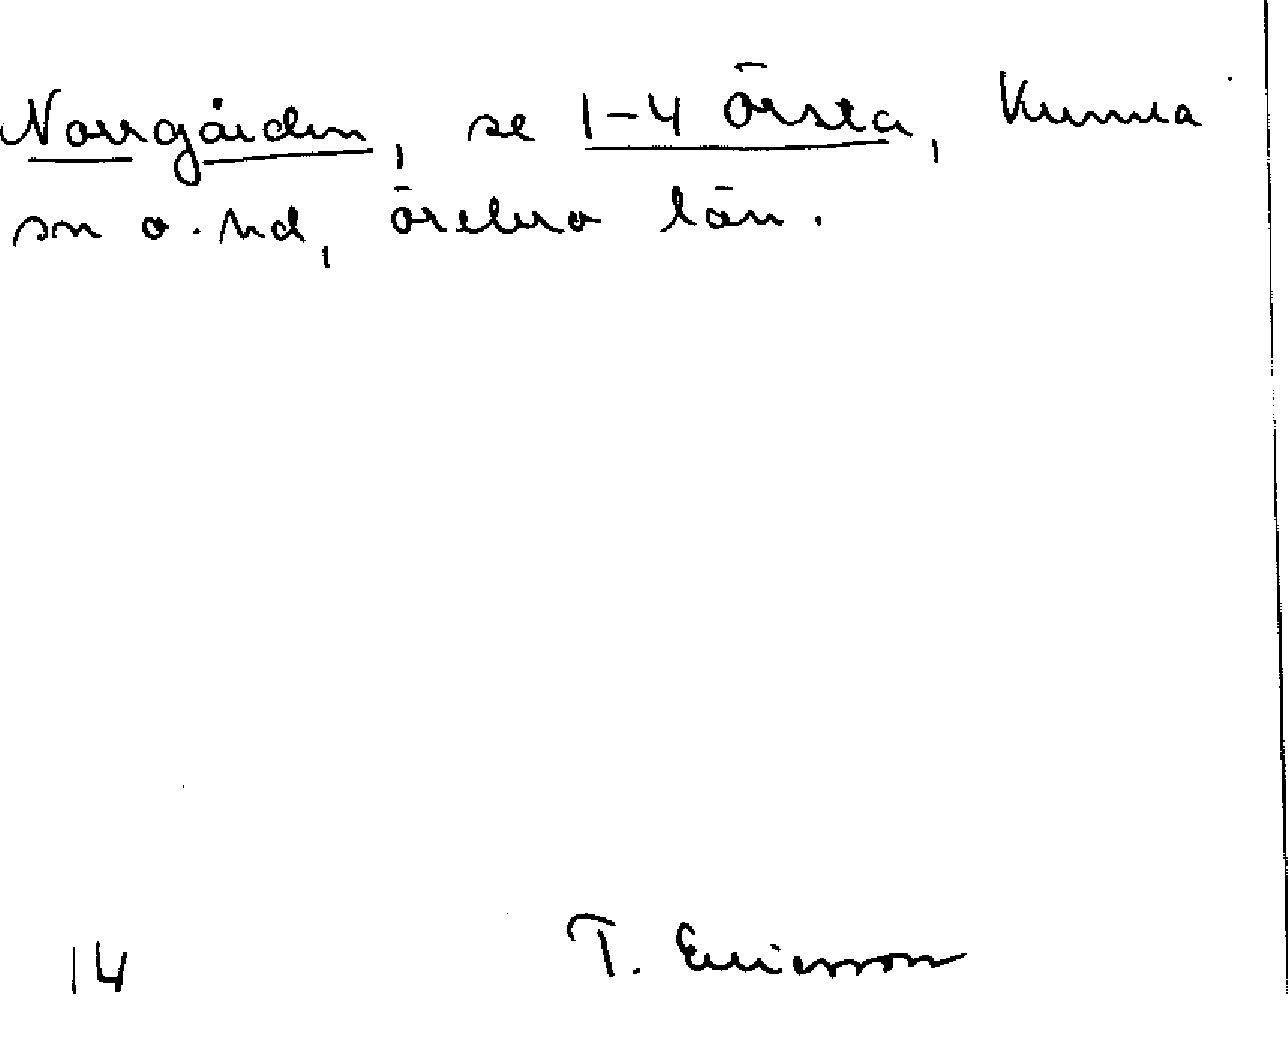 Norrgården, se 1-4 Örsta, Kumla
sn o. hd, Örebro län.
14 T. Ericsson